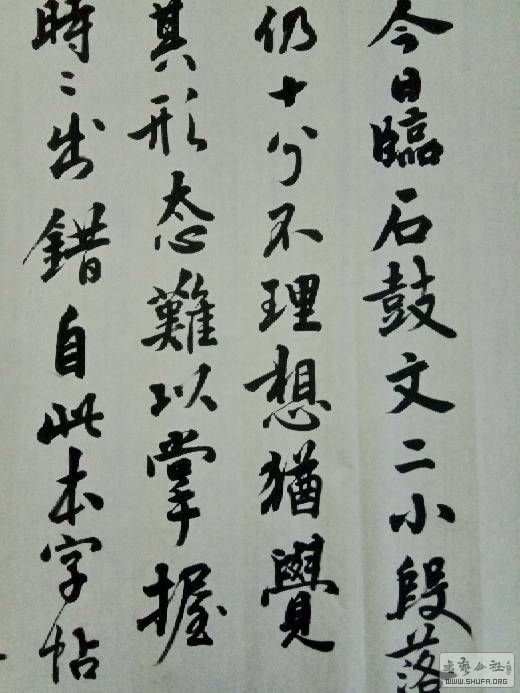 今日臨石鼓文二小段落
仍十分不理想猶覺
其形态難以掌握
時〻出錯自此本字帖
书艺公社
WWW.SHUFA.ORG